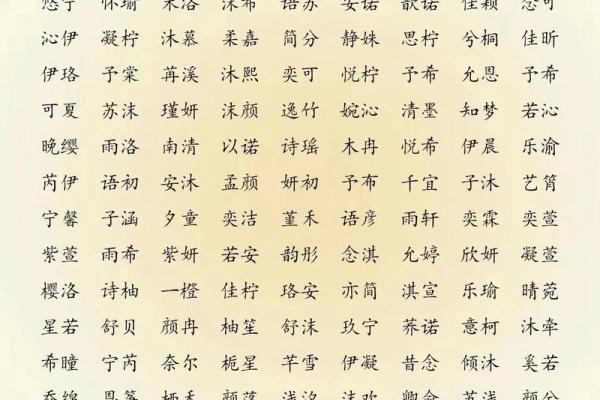 悠宁 怀瑜 木洛 沫希 语苏 安诺 歆诺 佳颖 念可
沁伊 凝柠 沐慕 柔嘉 简分 静姝 思柠 兮桐 佳昕
伊珞 予棠 苒溪 沐熙 奕可 悦柠 予希 允恩 予希
可夏 苏沫 瑾妍 沫颜 逸竹 婉沁 清墨 知梦 若沁
晚缨 雨洛 南清 以诺 诗瑶 木冉 悦希 伊晨 乐渝
芮伊 语初 安沐 孟颜 妍初 予布 千宜 子沐 艺筲
宁馨 子涵 夕童 奕洁 堇禾 语彦 雨轩 奕霖 奕萱
紫萱 雨希 紫妍 若安 韵彤 念淇 允婷 欣妍 凝萱
樱洛 诗柚 一橙 佳柠 珞安 亦简 淇宣 乐瑜 晴菀
星若 舒贝 颜冉 柚笙 舒沫 玖宁 荞诺 意柯 沐牵
希瞳 宁芮 奈尔 栀星 芊雪 伊凝 昔念 倾沐 奚若